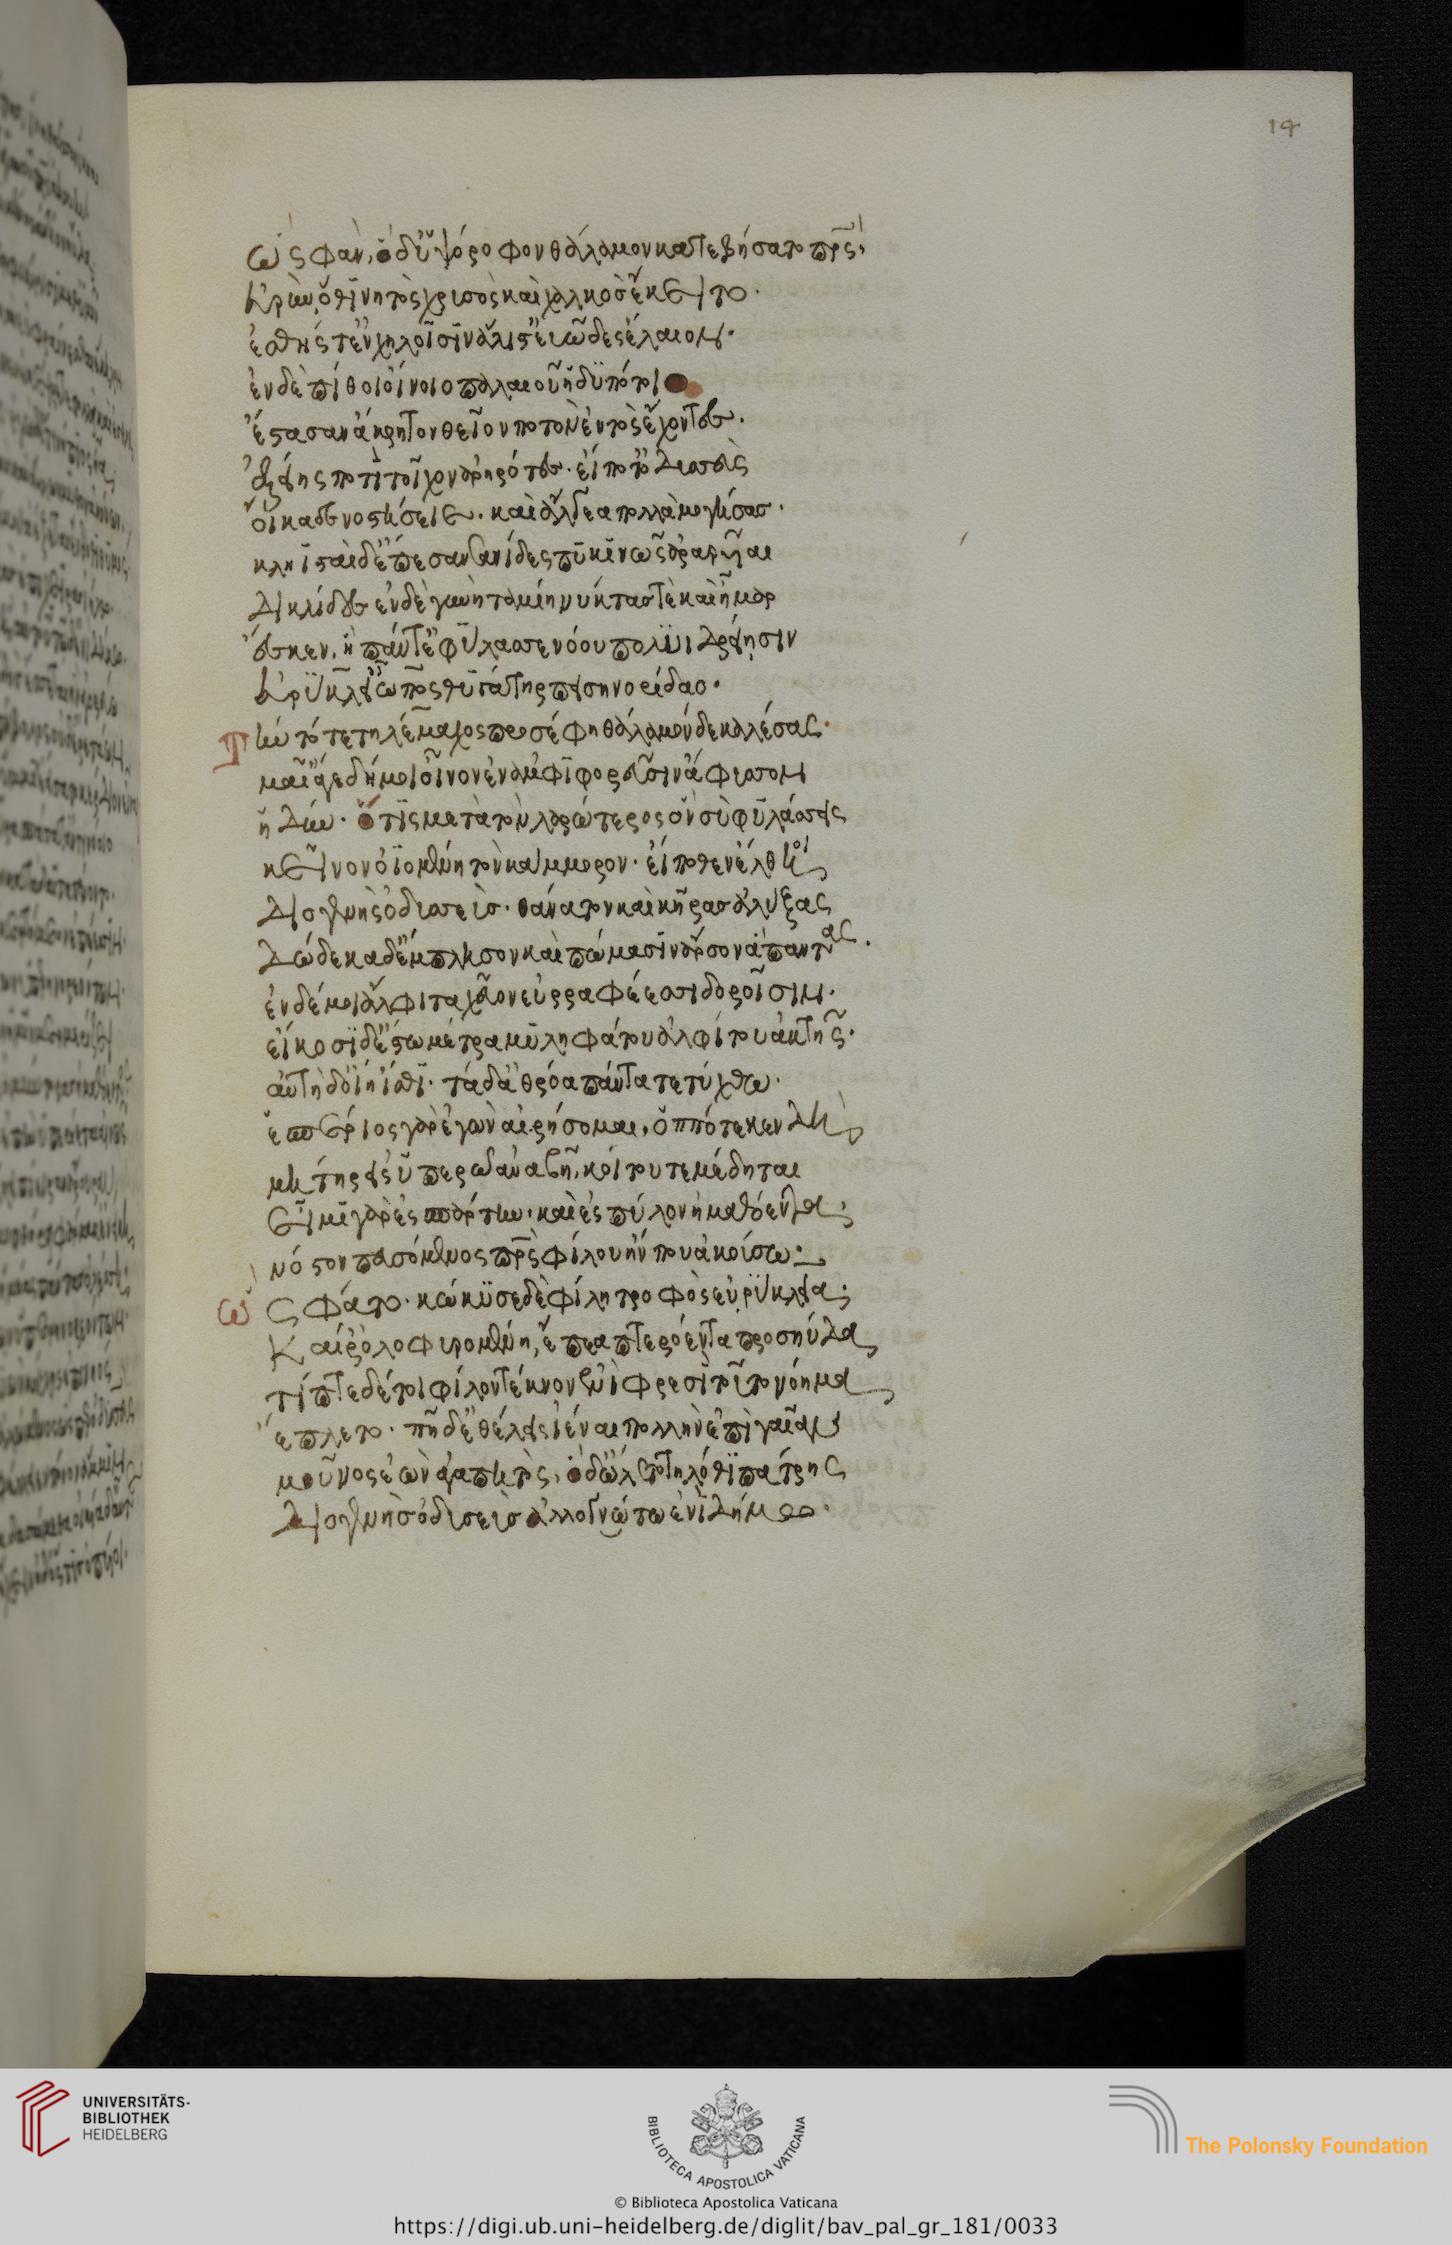 14
ὣς φάν, ὁ δ' ὑψόροφον θάλαμον κατεβήσατο πρς,
εὐρὺν, ὅθι νητὸς χρυσὸς καὶ χαλκὸς ἔκειτο.
ἐσθής τ' ἐν χηλοῖσιν ἅλις τ' εὐῶδες ἔλαιον.
ἐν δὲ πίθοι οἴνοιο παλαιοῦ ἡδυπότοιο
ἕστασαν ἄκρητον θεῖον ποτὸν ἐντὸς ἔχοντες.
ἑξείης ποτὶ τοῖχον ἀρηρότες. εἴ ποτ' ὀδυσσεὺς
οἴκαδε νοστήσειε. καὶ ἄλγεα πολλὰ μογήσας.
κληϊσταὶ δ' ἔπεσαν σανίδες πυκινῶς ἀραρυῖαι
δικλίδες ἐν δὲ γυνὴ ταμίη νύκτας τὲ καὶ ἦμαρ
ἔσκεν. ἣ πάντ' ἐφύλασσε νόου πολυϊδρείησιν
εὐρύκλει' ὦπος θυγάτηρ πεισηνορίδαο.
τὴν τότε τηλέμαχος προσέφη θάλαμόνδε καλέσας.
μαῖ' ἄγε δή μοι οἶνον ἐν ἀμφιφορεῦσιν ἄφυσσον
ἡδὺν. ὅτις μετὰ τὸν λαρώτερος ὃν σὺ φυλάσσεις
κεῖνον ὀϊομένη τὸν κάμμορον. εἴ ποθεν ἔλθοι
διογενὴς ὀδυσσεὺς. θάνατον καὶ κῆρας ἀλύξας
δώδεκα δ' ἔμπλησον καὶ πώμασιν ἄρσον ἅπαντας.
ἐν δέ μοι ἄλφιτα χεῦον ἐϋρραφέεσσι δοροῖσιν.
εἴκοσι δ' ἔστω μέτρα μυληφάτου ἀλφίτου ἀκτῆς.
αὐτὴ δ' οἴη ἴσθι. τὰ δ' ἀθρόα πάντα τετύχθω.
ἑσπέριος γὰρ ἐγὼν αἱρήσομαι, ὁππότε κεν δὴ
μήτηρ εἰς ὑπερῷ' ἀναβῆ, κοίτου τε μέδηται
εἶμι γὰρ ἐς σπάρτην. καὶ ἐς πύλον ἠμαθόεντα.
νόστον πευσόμενος πρς φίλου ἤν που ἀκούσω.
ὣς φάτο. κώκυσε δὲ φίλη τροφὸς εὐρύκλεια.
Καί ῥ' ὀλοφυρομένη, ἔπεα πτερόεντα προσηύδα
τίπτε δέ τοι φίλον τέκνον ἐνὶ φρεσὶ τοῦτο νόημα
ἔπλετο. πῆ δ' ἐθέλεις ἰέναι πολλὴν ἐπὶ γαῖαν
μοῦνος ἐὼν ἀγαπητός, ὁ δ' ὤλετο τηλόθι πάτρης
διογενὴς ὀδυσεὺς ἀλλογνώτῳ ἐνὶ δήμῳ.
UNIVERSITÄTS-
BIBLIOTHEK
HEIDELBERG
BIBLIOTECA APOSTOLICA VATICANA
The Polonsky Foundation
© Biblioteca Apostolica Vaticana
https://digi.ub.uni-heidelberg.de/diglit/bav_pal_gr_181/0033